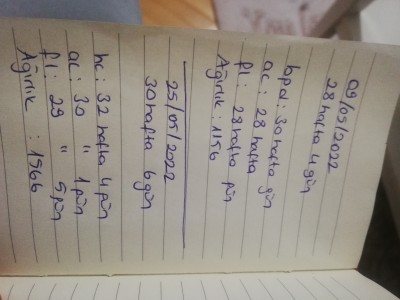 09/05/2022
28 hafta 4 gün
bpd: 30 hafta gün
ac: 28 hafta
fl: 28 hafta gün
Ağırlık: 1156
25/05/2022
30 hafta 6 gün
hc: 32 hafta 4 gün
ac: 30 " 1 gün
fl: 29 " 5 gün
Ağırlık: 1566